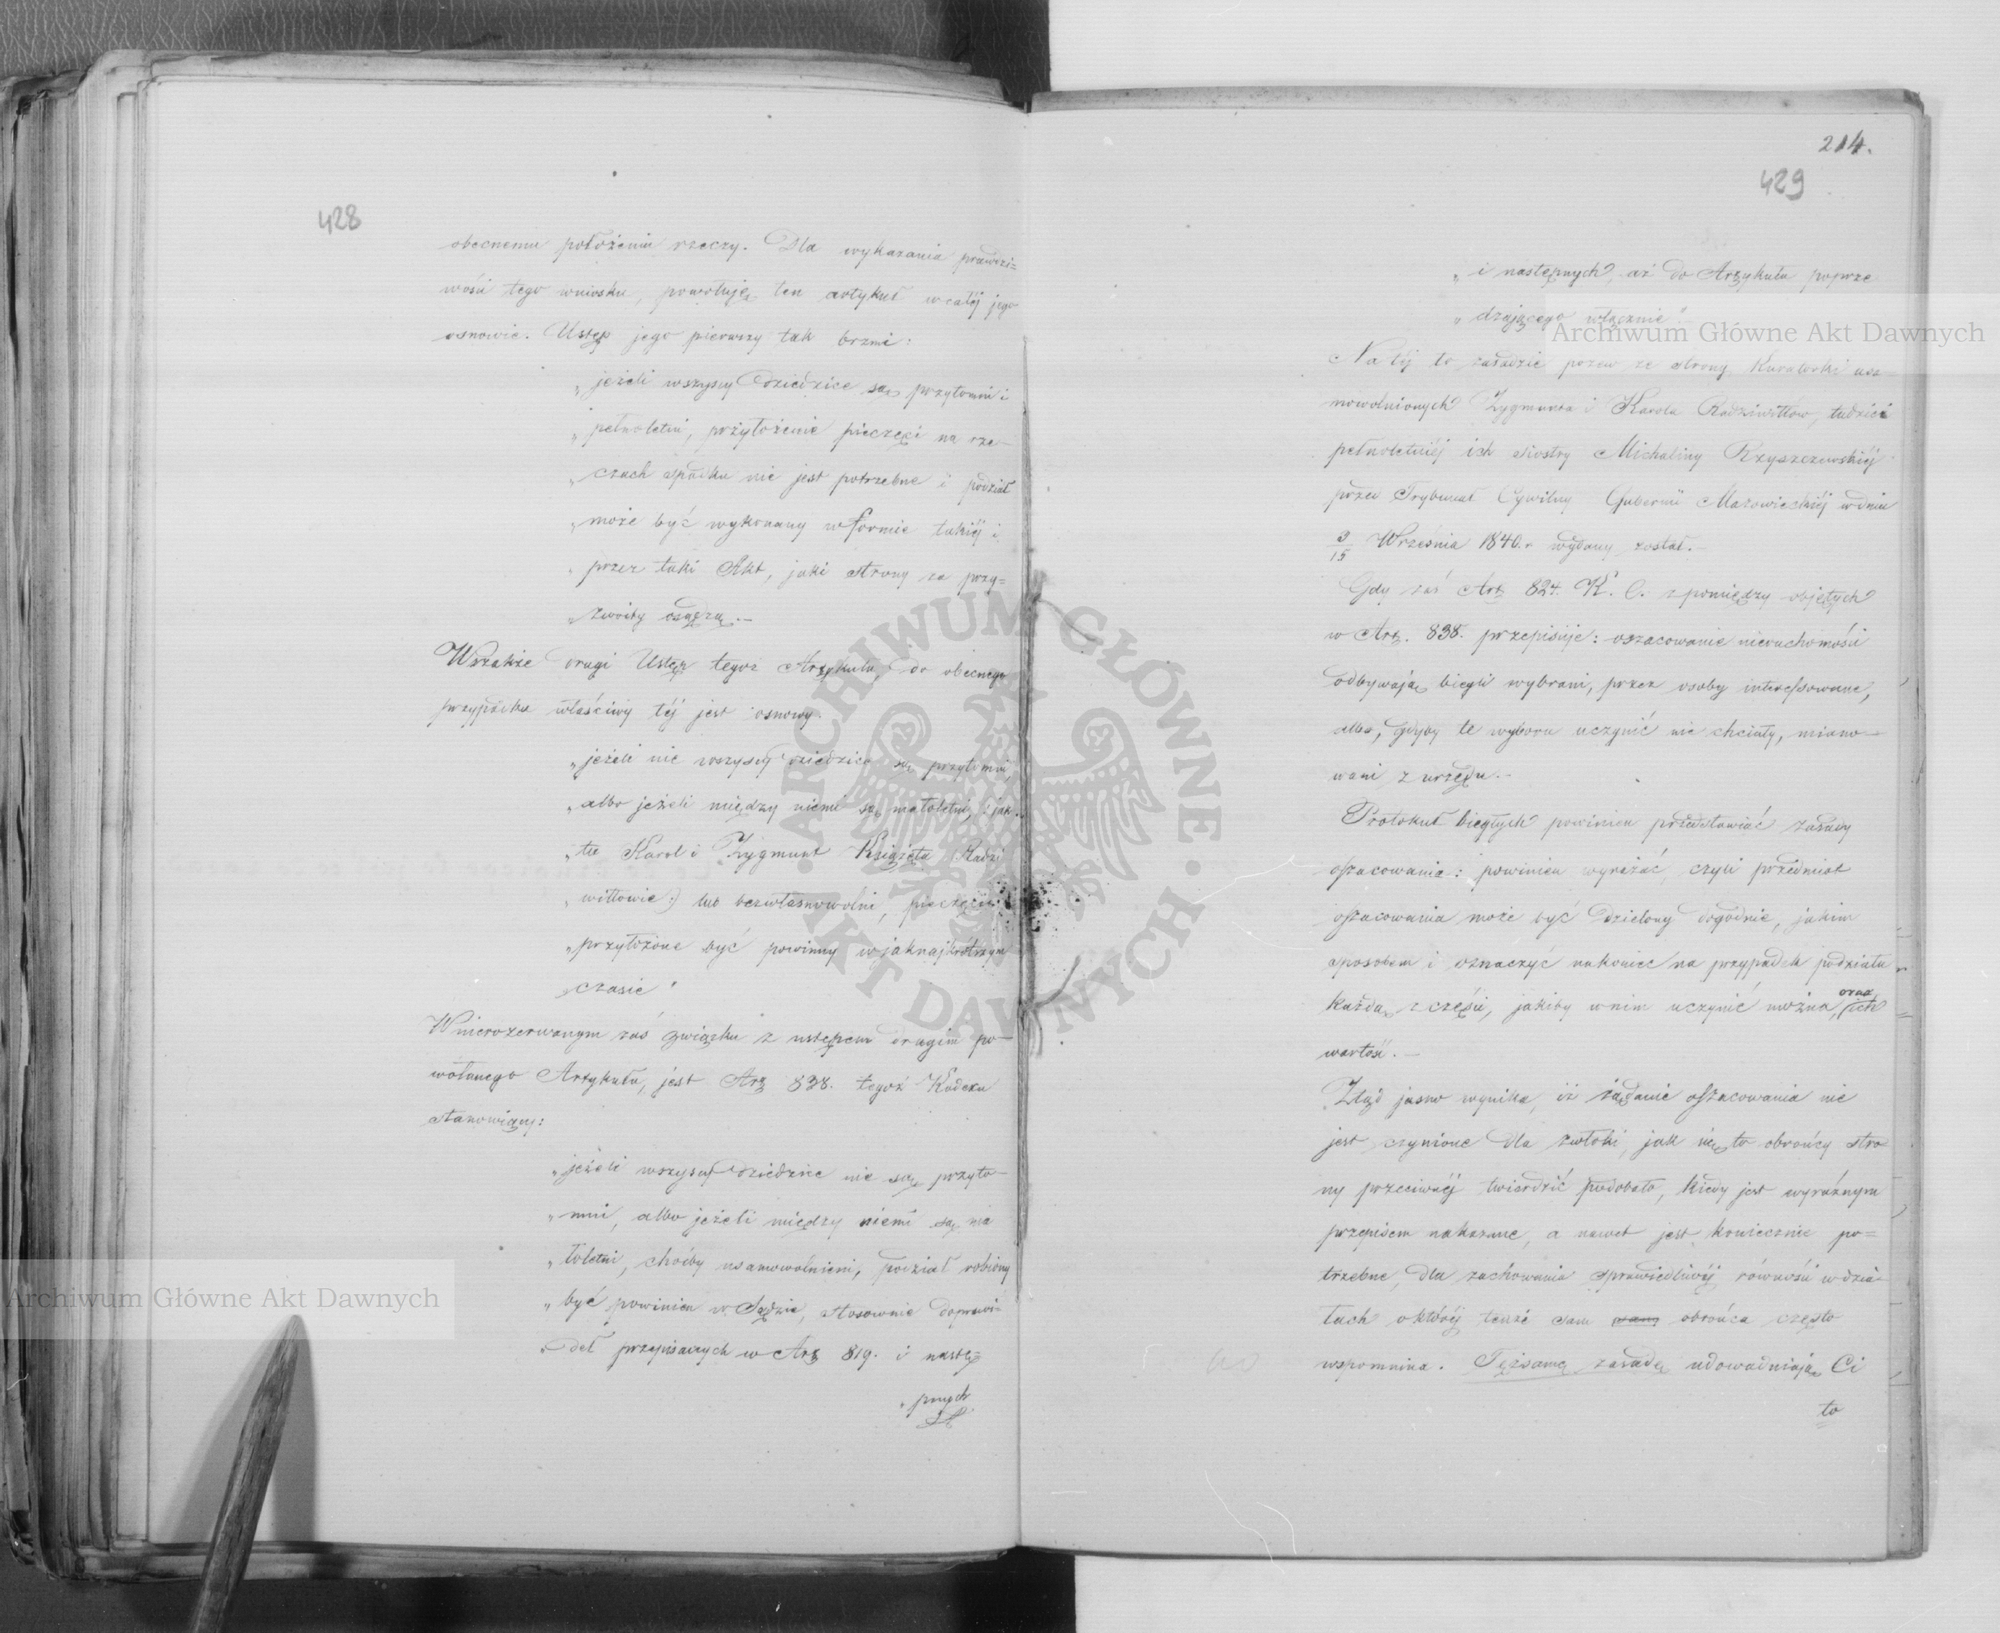 428
obecnemu położeniu rzeczy. Dla wykazania prawdzi=
wości tego wniosku, powołuję ten artykuł w całéj jego
osnowie. Ustęp jego pierwszy tak brzmi:
„jeżeli wszyscy dziedzice są przytomni i
„pełnoletni, przyłożenie pieczęci na rze-
„czach spadku nie jest potrzebne i podział
„może być wykonany w formie takiéj i
„przez taki Akt, jaki strony za przy=
„zwoity osądzą.—
Wszakże drugi Ustęp tegoż Artykułu, do obecnego
przypadku właściwy téj jest osnowy.
„jeżeli nie wszyscy dziedzice są przytomni,
„albo jeżeli między niemi są małoletni, (: jak
„tu Karol i Zygmunt Książęta Radzi
„wiłłowie :) lub bezwłasnowolni, pieczęcie
„przyłożone być powinny w jaknajkrótszym
czasie"
W nierozerwanym zaś związku z ustępem drugim po-
wołanego Artykułu, jest Art 838. tegoż Kodexu
stanowiący:
„jeżeli wszyscy dziedzice nie są przyto-
„mni, albo jeżeli między niemi są ma
„łoletni, choćby usamowolnieni, podział robiony
„być powinien w Sądzie, stosownie do prawi-
„deł przepisanych w Art 819. i nastę=
„pnych
214.
429
„i następnych, aż do Artykułu poprze
„dzającego włącznie".
Na téj to zasadzie pozew ze strony Kuratorki usa-
mowolnionych Zygmunta i Karola Radziwiłłów, tudzież
pełnoletniéj ich siostry Michaliny Rzyszczewskiéj
przed Trybunał Cywilny Gubernii Mazowieckiéj w dniu
3/15 Września 1840. r wydany został.—
Gdy zaś Art 824. K. C. z pomiędzy objętych
w Art. 838. przepisuje: oszacowanie nieruchomości
odbywają biegli wybrani, przez osoby interessowane,
albo, gdyby te wyboru uczynić nie chciały, miano—
wani z urzędu.—
Protokuł biegłych powinien przedstawiać zasady
oszacowania: powinien wyrażać, czyli przedmiot
oszacowania może być dzielony dogodnie, jakim
sposobem i oznaczyć nakoniec na przypadek podziału
każdą z części, jakiby w nim uczynić można, oraz ich
wartość.—
Ztąd jasno wynika, iż żądanie oszacowania nie
jest czynione dla zwłoki, jak się to obrońcy stro
ny przeciwnéj twierdzić podobało, kiedy jest wyraźnym
przepisem nakazane, a nawet jest koniecznie po=
trzebne, dla zachowania sprawiedliwéj równości w dzia-
łach o któréj tenże sam obrońca często
wspomina. Tęż samą zasadę udowadniają Ci
to
Archiwum Główne Akt Dawnych
Archiwum Główne Akt Dawnych
· ARCHIWUM GŁÓWNE · AKT DAWNYCH